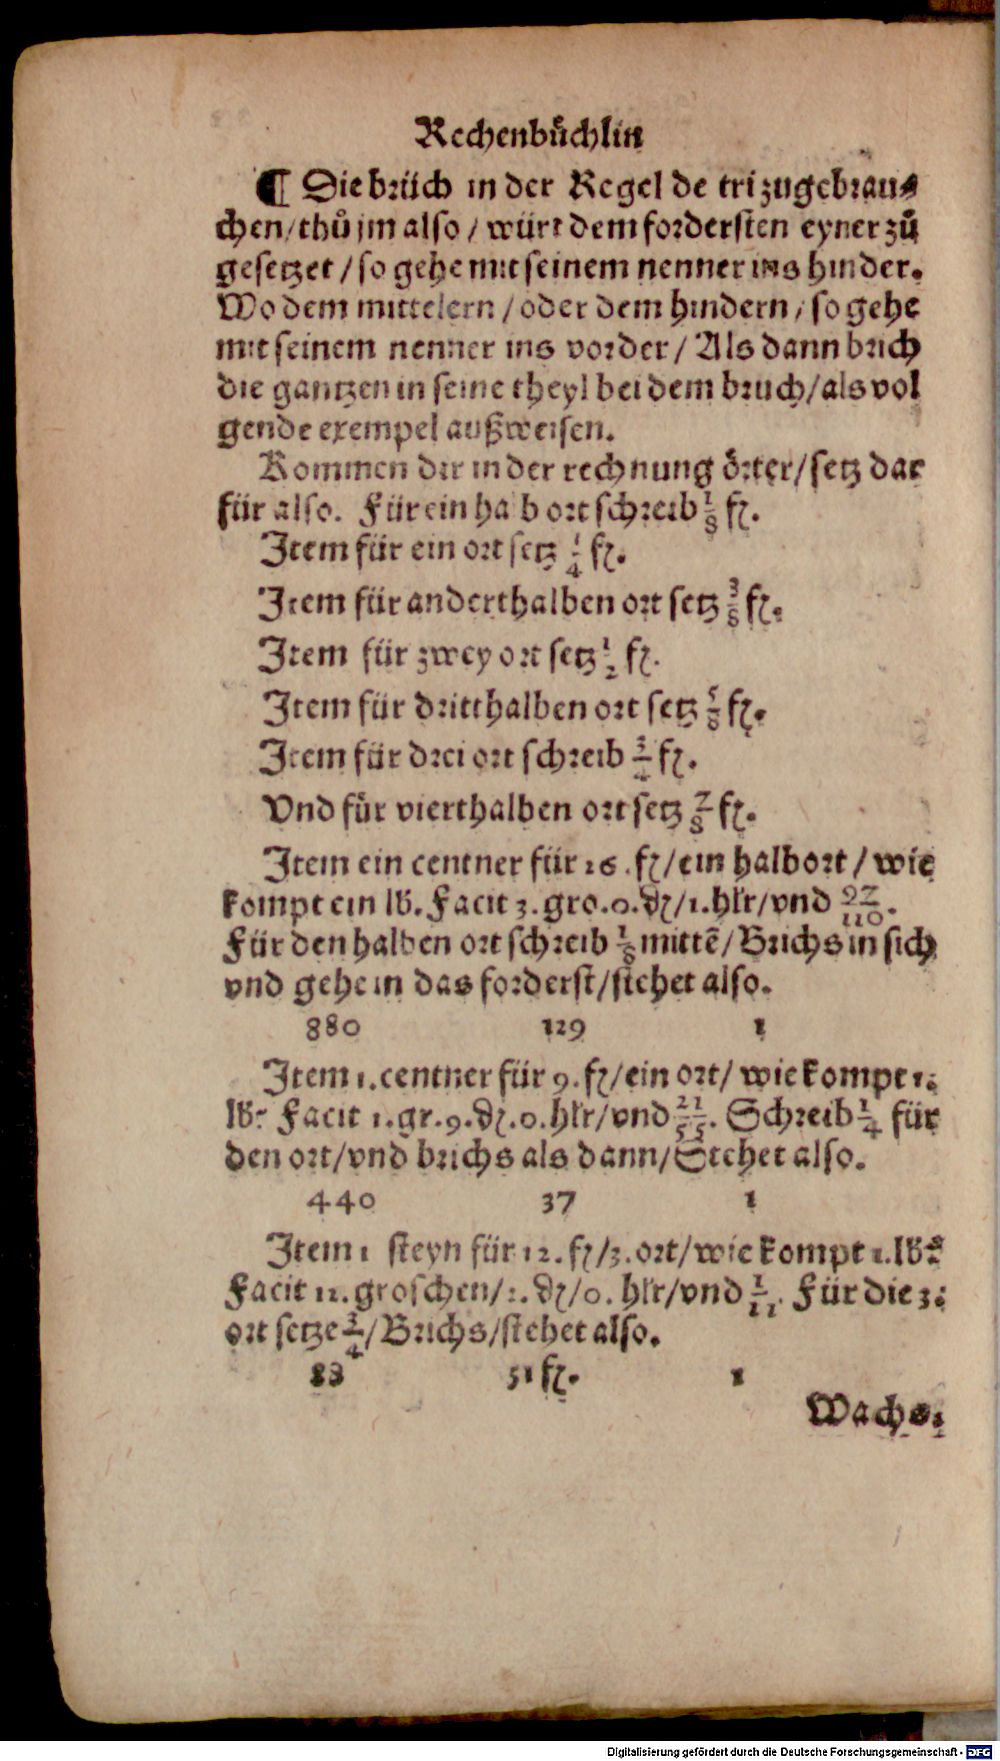 Rechenbuͤchlin
¶ Die bruͤch in der Regel de tri zugebrau⸗
chen/ thuͦ jm also / würt dem fordersten eyner zuͦ
gesetzet / so gehe mit seinem nenner ins hinder.
Wo dem mittelern / oder dem hindern / so gehe
mit seinem nenner ins vorder / Als dann brich
die gantzen in seine theyl bei dem bruch / als vol
gende exempel außweisen.
Kommen dir in der rechnung oͤrter / setz dar
für also. Für ein halb ort schreib 1/8 fl.
Item für ein ort setz 1/4 fl.
Item für anderthalben ort setz 3/8 fl.
Item für zwey ort setz 1/2 fl.
Item für dritthalben ort setz 5/8 fl.
Item für drei ort schreib 3/4 fl.
Vnd fuͤr vierthalben ort setz 7/8 fl.
Item ein centner für 16. fl / ein halb ort / wie
kompt ein lb. Facit 3. gro. 0. ₰ / 1. hlr / vnd 97/110.
Für den halben ort schreib 1/8 mittē / Brichs in sich
vnd gehe in das forderst / stehet also.
880 129 1
Item 1. centner für 9. fl / ein ort / wie kompt 1.
lb? Facit 1. gr. 9. ₰. 0. hlr / vnd 21/55. Schreib 1/4 für
den ort / vnd brichs als dann / Stehet also.
440 37 1
Item 1 steyn für 12. fl / 3. ort / wie kompt 1. lb?
Facit 12. groschen / 2. ₰ / 0. hlr / vnd 2/11. Für die 3.
ort setze 3/4 / Brichs / stehet also.
88 51 fl. 1
Wachs.
Digitalisierung gefördert durch die Deutsche Forschungsgemeinschaft - DFG